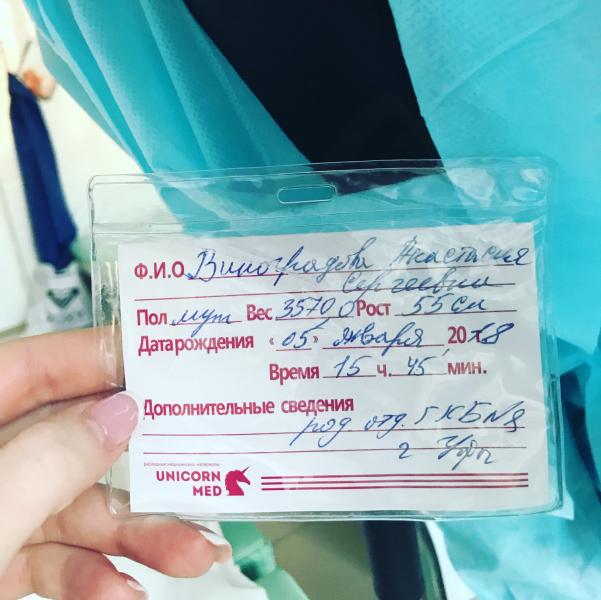 Ф.И.О. Виноградова Анастасия
Сергеевна
Пол муж Вес 3570 Рост 55 см
Дата рождения «05» января 2018
Время 15 ч. 45 мин.
Дополнительные сведения
род. отд. ГКБ№8
г Уфы
расходные медицинские материалы
UNICORN
MED